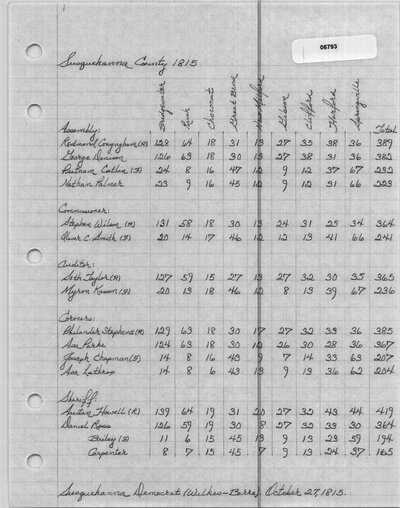 06793
Susquehanna County 1815
Bridgewater Rush Choconut Great Bend New Milford Gibson Clifford Harford Springville
Assembly: Total
Redmond Conyngham (R) 128 64 18 31 13 27 35 38 36 389
George Denison 126 63 18 30 13 27 38 31 36 382
Putnam Catlin (F) 24 8 16 47 12 9 12 37 67 232
Nathan Palmer 23 9 16 45 12 9 12 31 66 223
Commissioner:
Stephen Wilson (R) 131 58 18 30 13 24 31 25 34 364
Oliver C. Smith (F) 20 14 17 46 12 12 13 41 66 241
Auditor:
Seth Taylor (R) 127 59 15 27 13 27 32 30 35 365
Myron Kasson (F) 20 13 18 46 12 8 13 39 67 236
Coroners:
Philander Stephens (R) 129 63 18 30 17 27 32 33 36 385
Asa Parke 124 63 18 30 12 26 30 28 36 367
Joseph Chapman (F) 14 8 16 43 9 7 14 33 63 207
Asa Lathrop 14 8 6 43 13 9 13 36 62 204
Sheriff:
Austin Howell (R) 139 64 19 31 20 27 32 43 44 419
Daniel Ross 126 59 19 30 8 27 32 33 30 364
Bailey (F) 11 6 15 45 13 9 13 23 59 194
Carpenter 8 7 15 45 7 9 13 24 37 165
Susquehanna Democrat (Wilkes-Barre). October 27, 1815.